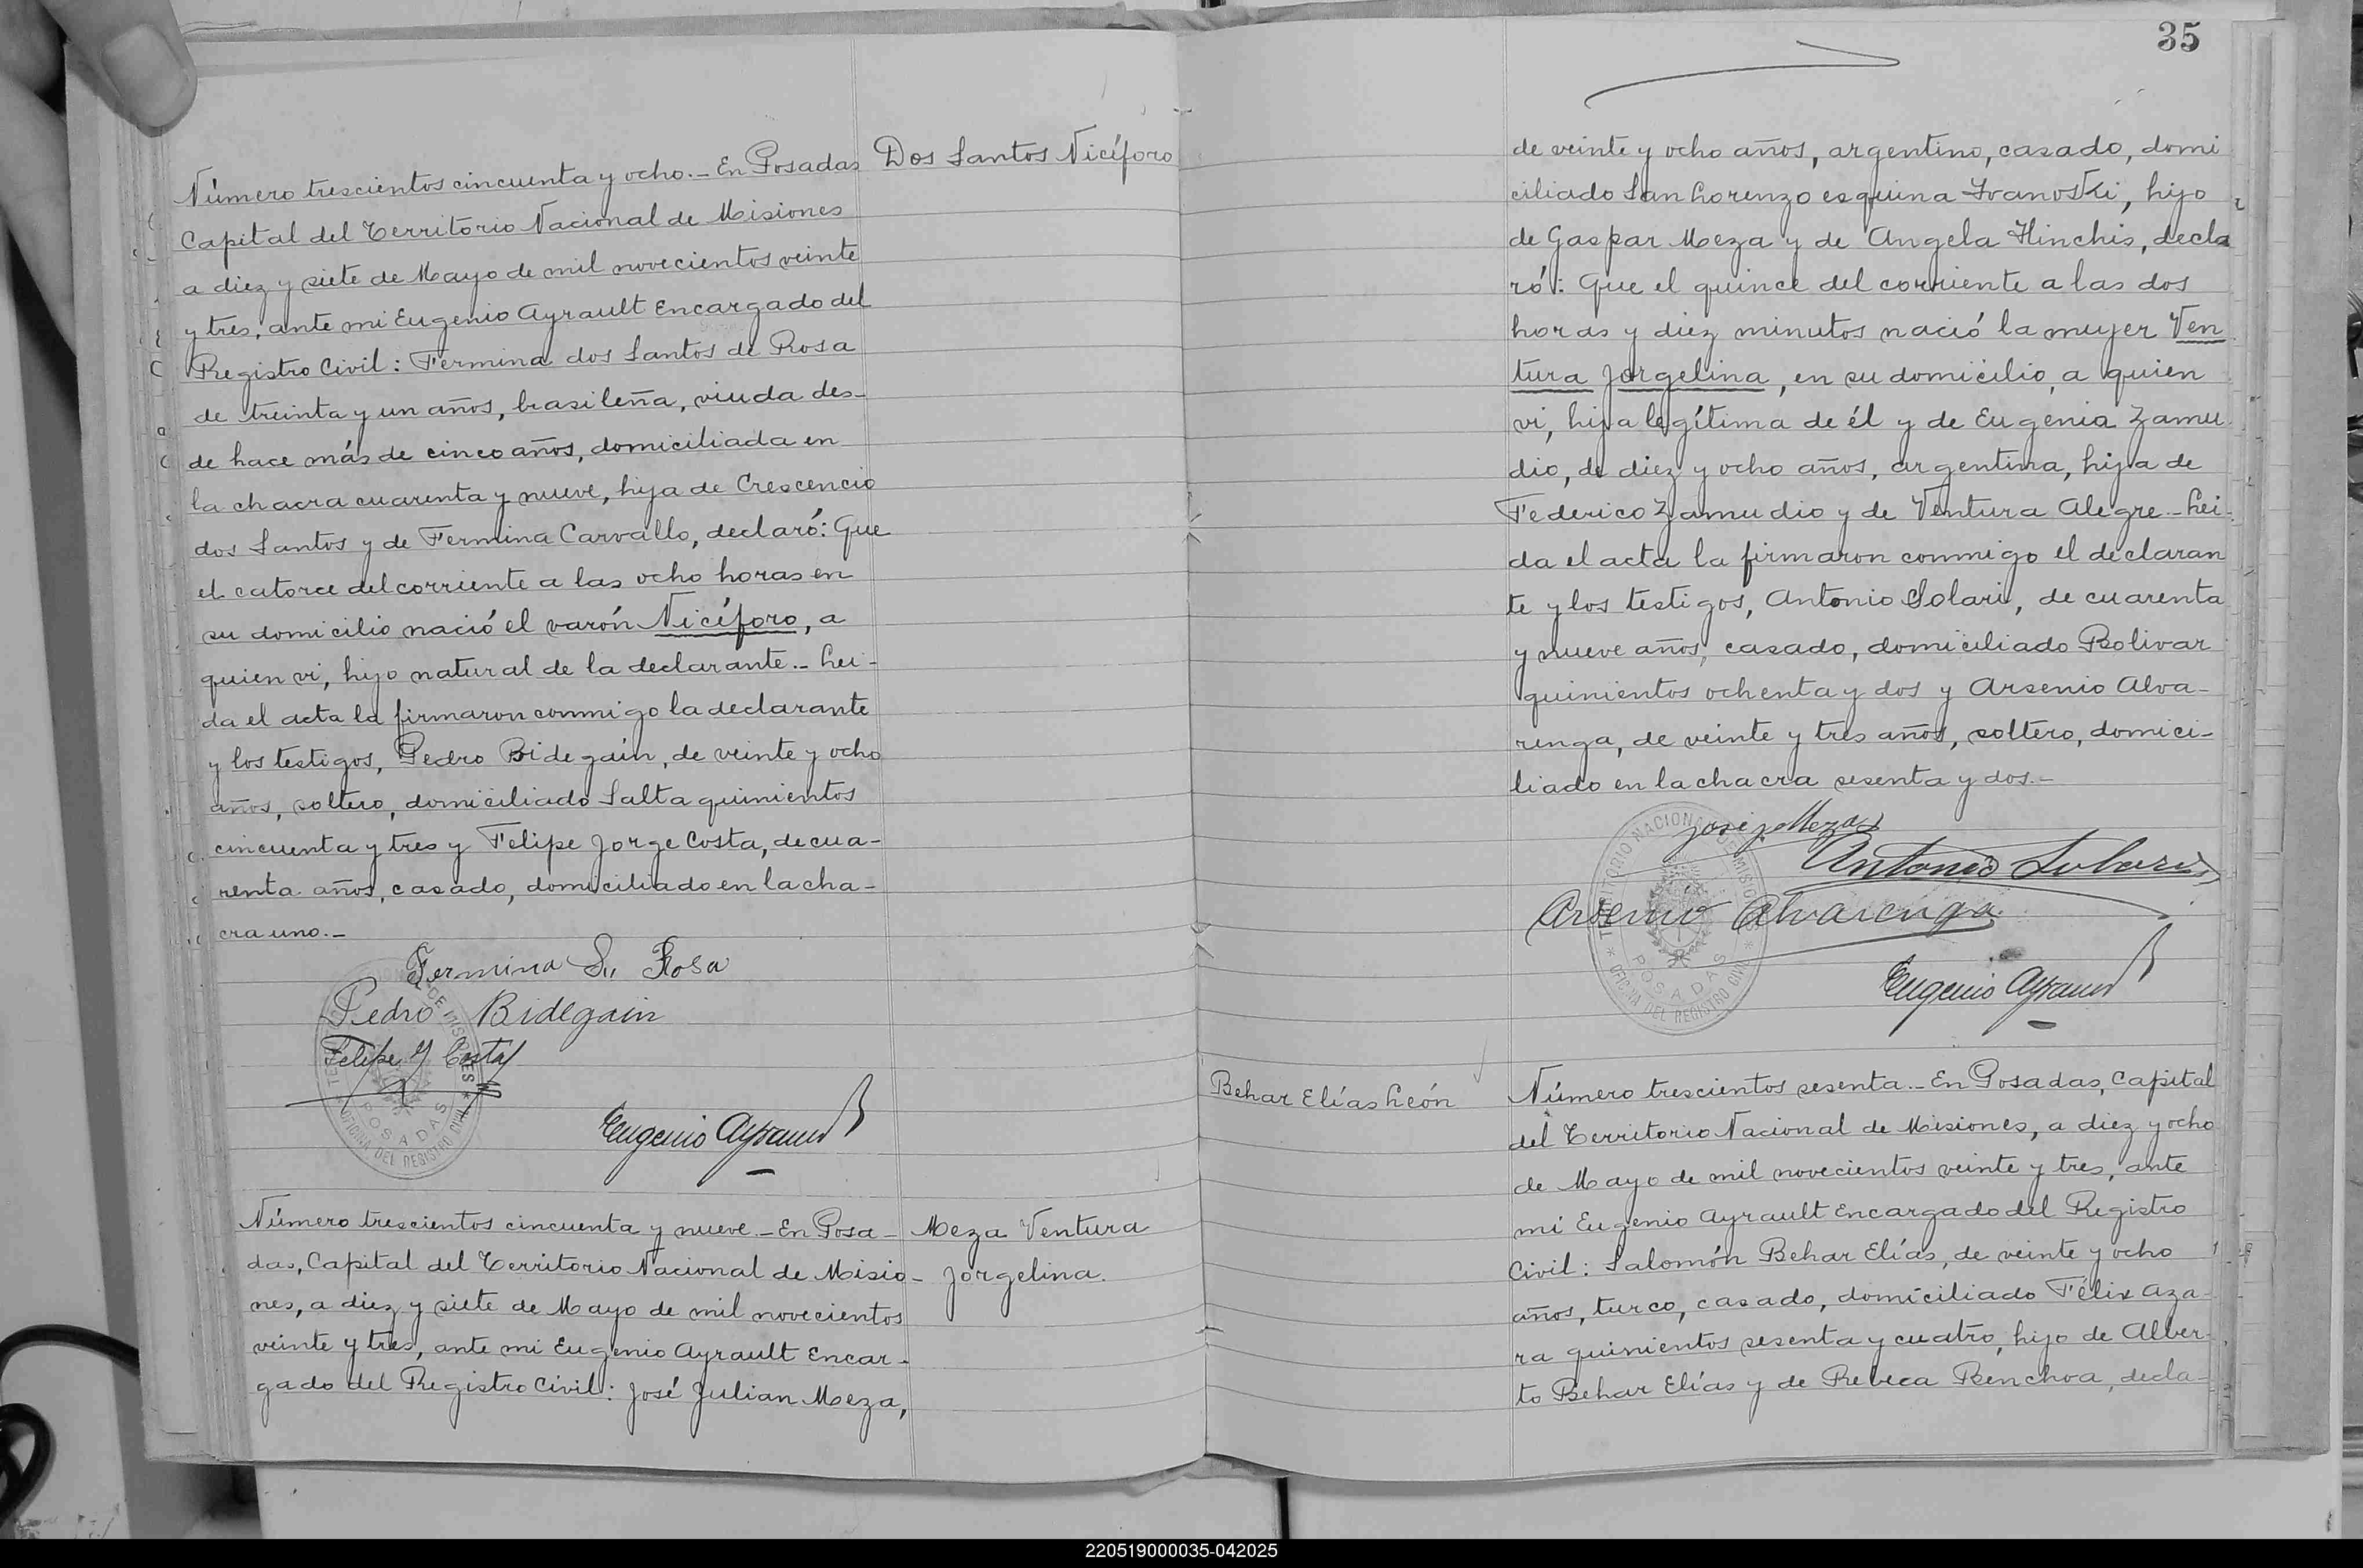 Número trescientos cincuenta y ocho.- En Posadas
Capital del Territorio Nacional de Misiones
a diez y siete de Mayo de mil novecientos veinte
y tres, ante mi Eugenio Ayrault Encargado del
Registro Civil: Fermina dos Santos de Rosa
de treinta y un años, brasileña, viuda des-
de hace más de cinco años, domiciliada en
la chacra cuarenta y nueve, hija de Crescencio
dos Santos y de Fermina Carvallo, declaró: Que
el catorce del corriente a las ocho horas en
su domicilio nació el varón Nicéforo, a
quien vi, hijo natural de la declarante.- Lei-
da el acta la firmaron conmigo la declarante
y los testigos, Pedro Bidegain, de veinte y ocho
años, soltero, domiciliado Salta quinientos
cincuenta y tres y Felipe Jorge Costa, de cua-
renta años, casado, domiciliado en la cha-
cra uno.-
Dos Santos Nicéforo
Fermina S. Rosa
Pedro Bidegain
Felipe J Costa
Eugenio Ayrault
TERRITORIO NACIONAL DE MISIONES
POSADAS
OFICINA DEL REGISTRO CIVIL
Número trescientos cincuenta y nueve.- En Posa-
das, Capital del Territorio Nacional de Misio-
nes, a diez y siete de Mayo de mil novecientos
veinte y tres, ante mi Eugenio Ayrault Encar-
gado del Registro Civil: José Julian Meza,
Meza Ventura
Jorgelina.
35
de veinte y ocho años, argentino, casado, domi
ciliado San Lorenzo esquina Ivanoski, hijo
de Gaspar Meza y de Angela Hinchis, decla
ró: Que el quince del corriente a las dos
horas y diez minutos nació la mujer Ven
tura Jorgelina, en su domicilio, a quien
vi, hija legítima de él y de Eugenia Zamu
dio, de diez y ocho años, argentina, hija de
Federico Zamudio y de Ventura Alegre.- Lei-
da el acta la firmaron conmigo el declaran
te y los testigos, Antonio Solari, de cuarenta
y nueve años, casado, domiciliado Bolivar
quinientos ochenta y dos y Arsenio Alva-
renga, de veinte y tres años, soltero, domici-
liado en la chacra sesenta y dos.-
José J. Meza
Antonio Solari
Arsenio Alvarenga
Eugenio Ayrault
TERRITORIO NACIONAL DE MISIONES
POSADAS
OFICINA DEL REGISTRO CIVIL
Behar Elías León
Número trescientos sesenta.- En Posadas, Capital
del Territorio Nacional de Misiones, a diez y ocho
de Mayo de mil novecientos veinte y tres, ante
mí Eugenio Ayrault Encargado del Registro
Civil: Salomón Behar Elías, de veinte y ocho
años, turco, casado, domiciliado Félix Aza-
ra quinientos sesenta y cuatro, hijo de Alber-
to Behar Elías y de Rebeca Benchoa, decla-
220519000035-042025